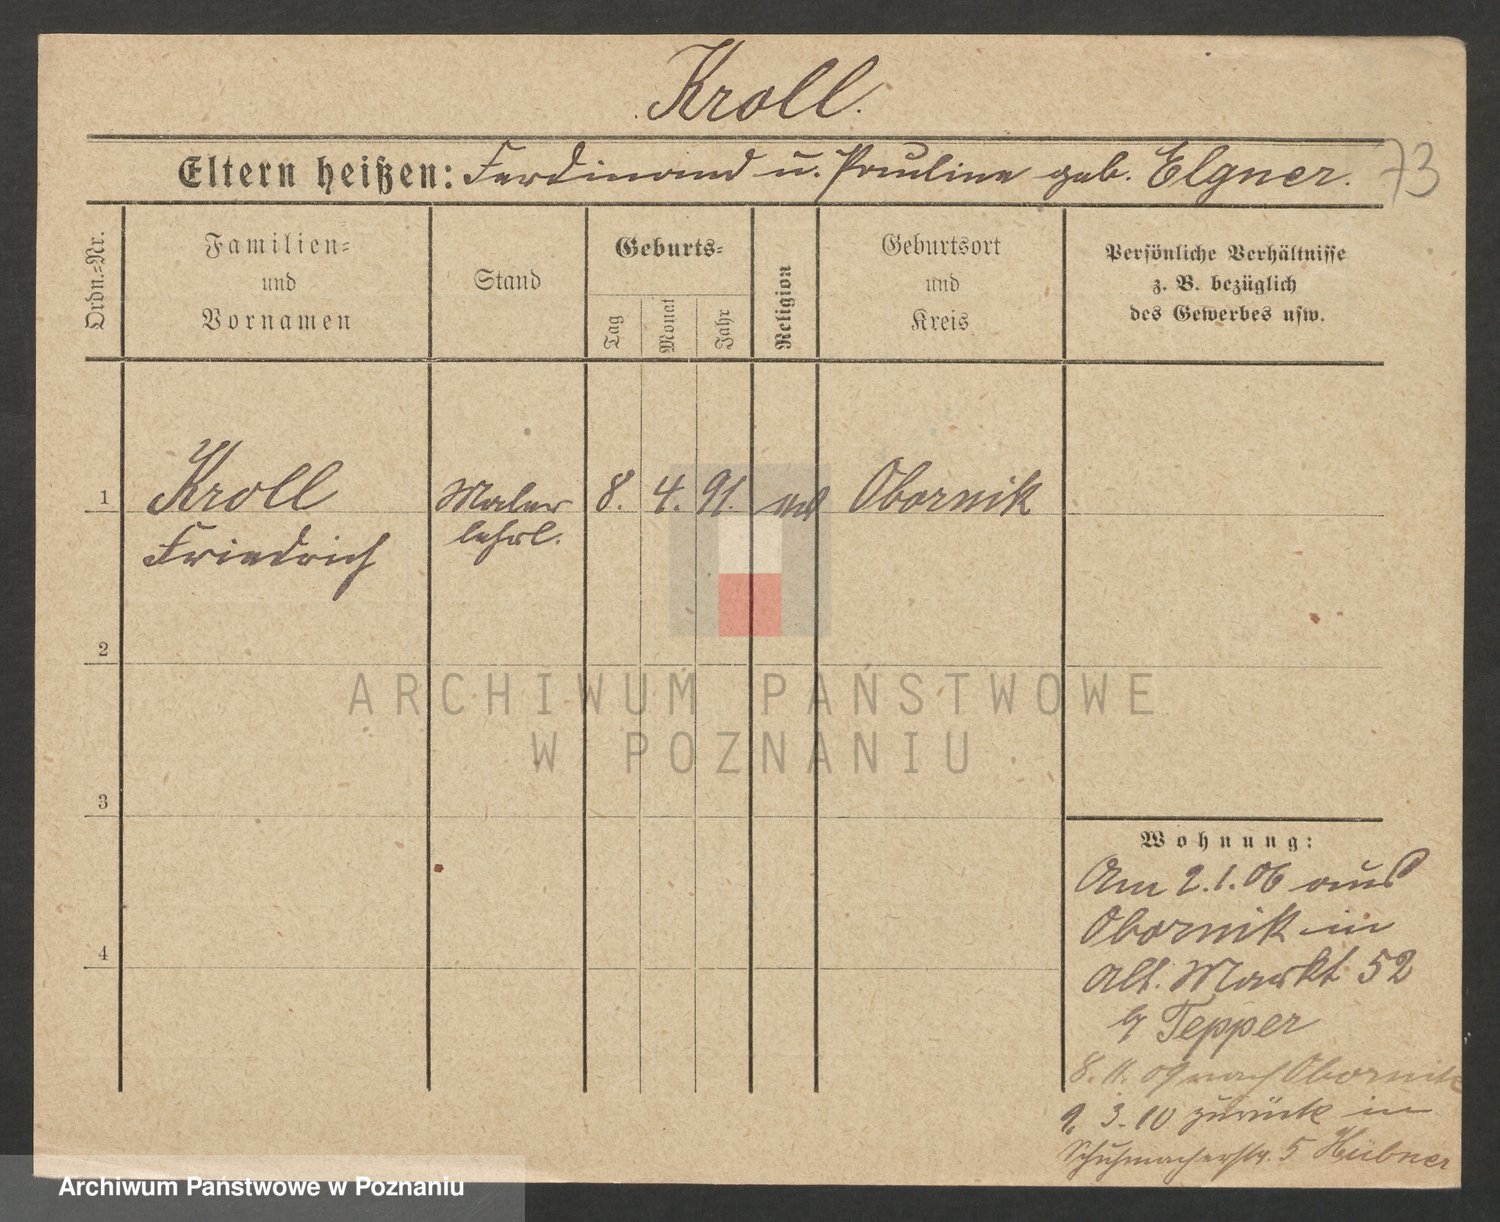 Kroll.
Eltern heißen: Ferdinand u. Pauline geb. Elgner.
73
Ordn.=Nr.
Familien=
und
Vornamen
Stand
Geburts=
Tag
Monat
Jahr
Religion
Geburtsort
und
Kreis
Persönliche Verhältnisse
z. B. bezüglich
des Gewerbes usw.
1
Kroll
Friedrich
Maler
lehrl.
8. 4. 91.
Obornik
2
3
4
ARCHIWUM PAŃSTWOWE
W POZNANIU
Wohnung:
Am 2.1.06 aus
Obornik in
Alt. Markt 52
b/ Tepper
8. 11. 09 nach Obornik
9. 3. 10 zurück in
Schuhmacherstr. 5 Hübner
Archiwum Państwowe w Poznaniu